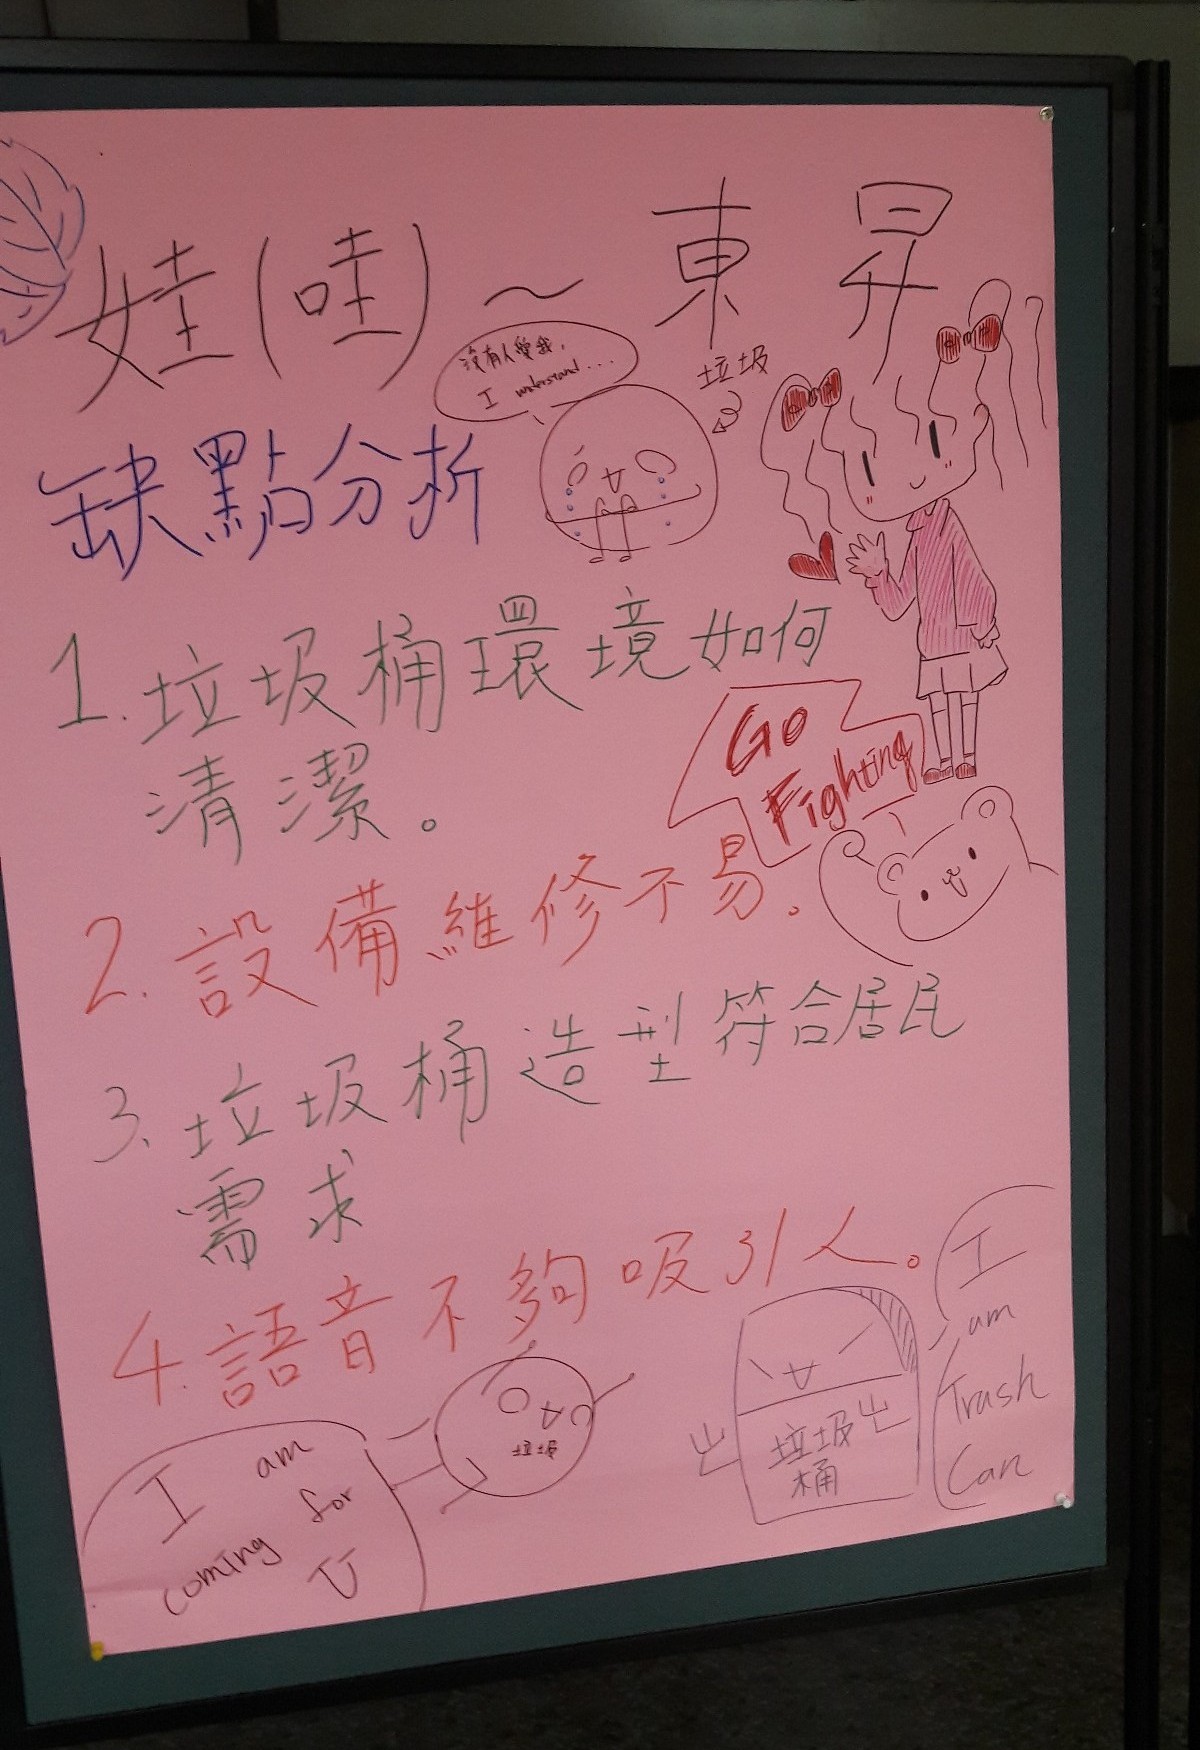 娃(哇)～東昇
沒有人愛我,
I understand...
垃圾
缺點分析
1.垃圾桶環境如何
清潔。
Go
Fighting
2.設備維修不易。
3.垃圾桶造型符合居民
需求
4.語音不夠吸引人。
垃圾
I am
coming for
U
垃圾
桶
I
am
Trash
Can